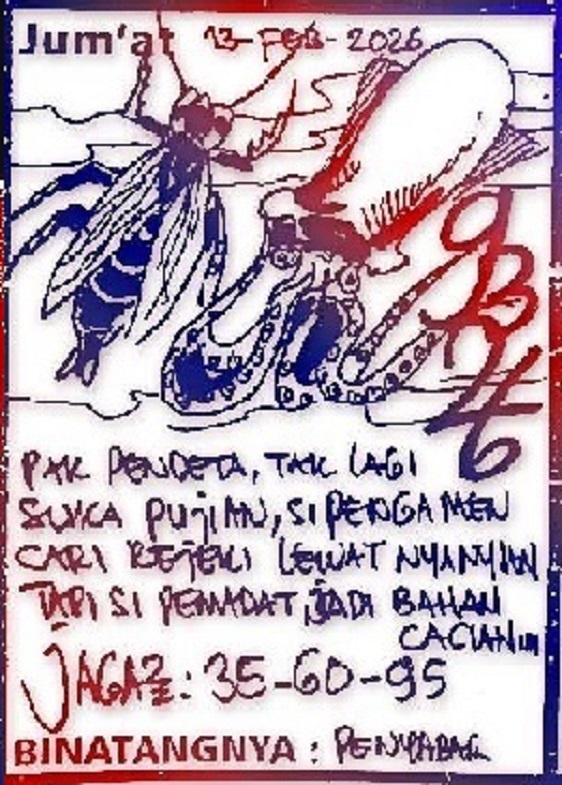 Jum'at 13-FEB-2026
PAK PENDETA, TAK LAGI
SUKA PUjiAN, Si PENGAMEN
CARI REjEKi LEWAT NYANYIAN
TAPI Si PEMADAT, jADI BAHAN
CACIAN...
JAGA2: 35-60-95
BINATANGNYA :